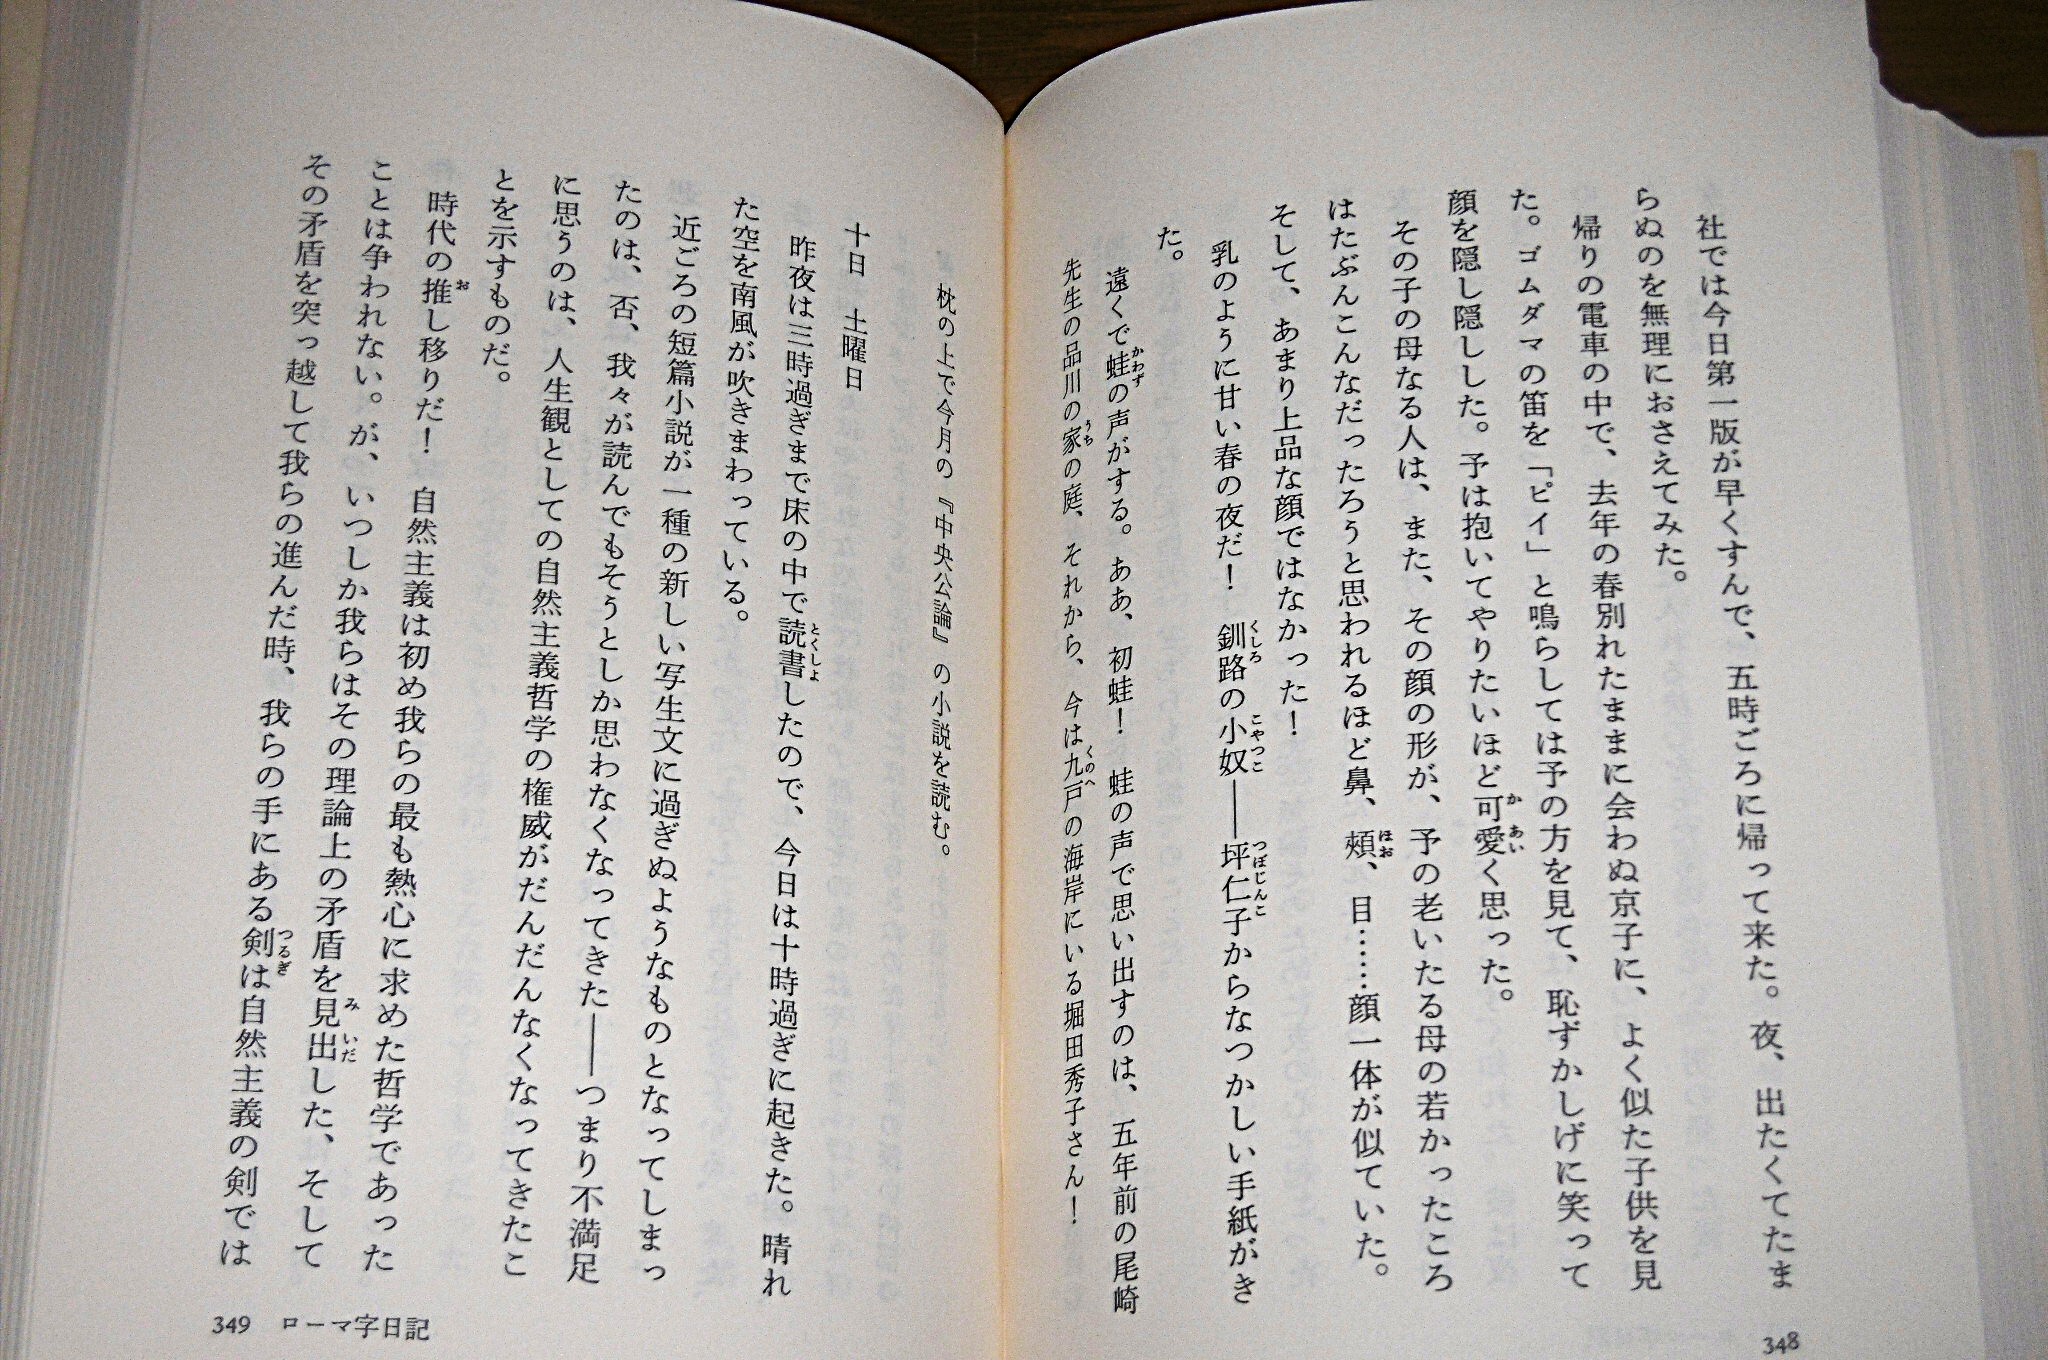 社では今日第一版が早くすんで、五時ごろに帰って来た。夜、出たくてたま
らぬのを無理におさえてみた。
帰りの電車の中で、去年の春別れたままに会わぬ京子に、よく似た子供を見
た。ゴムダマの笛を「ピイ」と鳴らしては予の方を見て、恥ずかしげに笑って
顔を隠し隠しした。予は抱いてやりたいほど可愛く思った。
その子の母なる人は、また、その顔の形が、予の老いたる母の若かったころ
はたぶんこんなだったろうと思われるほど鼻、頰、目……顔一体が似ていた。
そして、あまり上品な顔ではなかった！
乳のように甘い春の夜だ！　釧路の小奴――坪仁子からなつかしい手紙がき
た。
遠くで蛙の声がする。ああ、初蛙！　蛙の声で思い出すのは、五年前の尾崎
先生の品川の家の庭、それから、今は九戸の海岸にいる堀田秀子さん！
枕の上で今月の『中央公論』の小説を読む。
十日　土曜日
昨夜は三時過ぎまで床の中で読書したので、今日は十時過ぎに起きた。晴れ
た空を南風が吹きまわっている。
近ごろの短篇小説が一種の新しい写生文に過ぎぬようなものとなってしまっ
たのは、否、我々が読んでもそうとしか思わなくなってきた――つまり不満足
に思うのは、人生観としての自然主義哲学の権威がだんだんなくなってきたこ
とを示すものだ。
時代の推し移りだ！　自然主義は初め我らの最も熱心に求めた哲学であった
ことは争われない。が、いつしか我らはその理論上の矛盾を見出した、そして
その矛盾を突っ越して我らの進んだ時、我らの手にある剣は自然主義の剣では
348
349　ローマ字日記